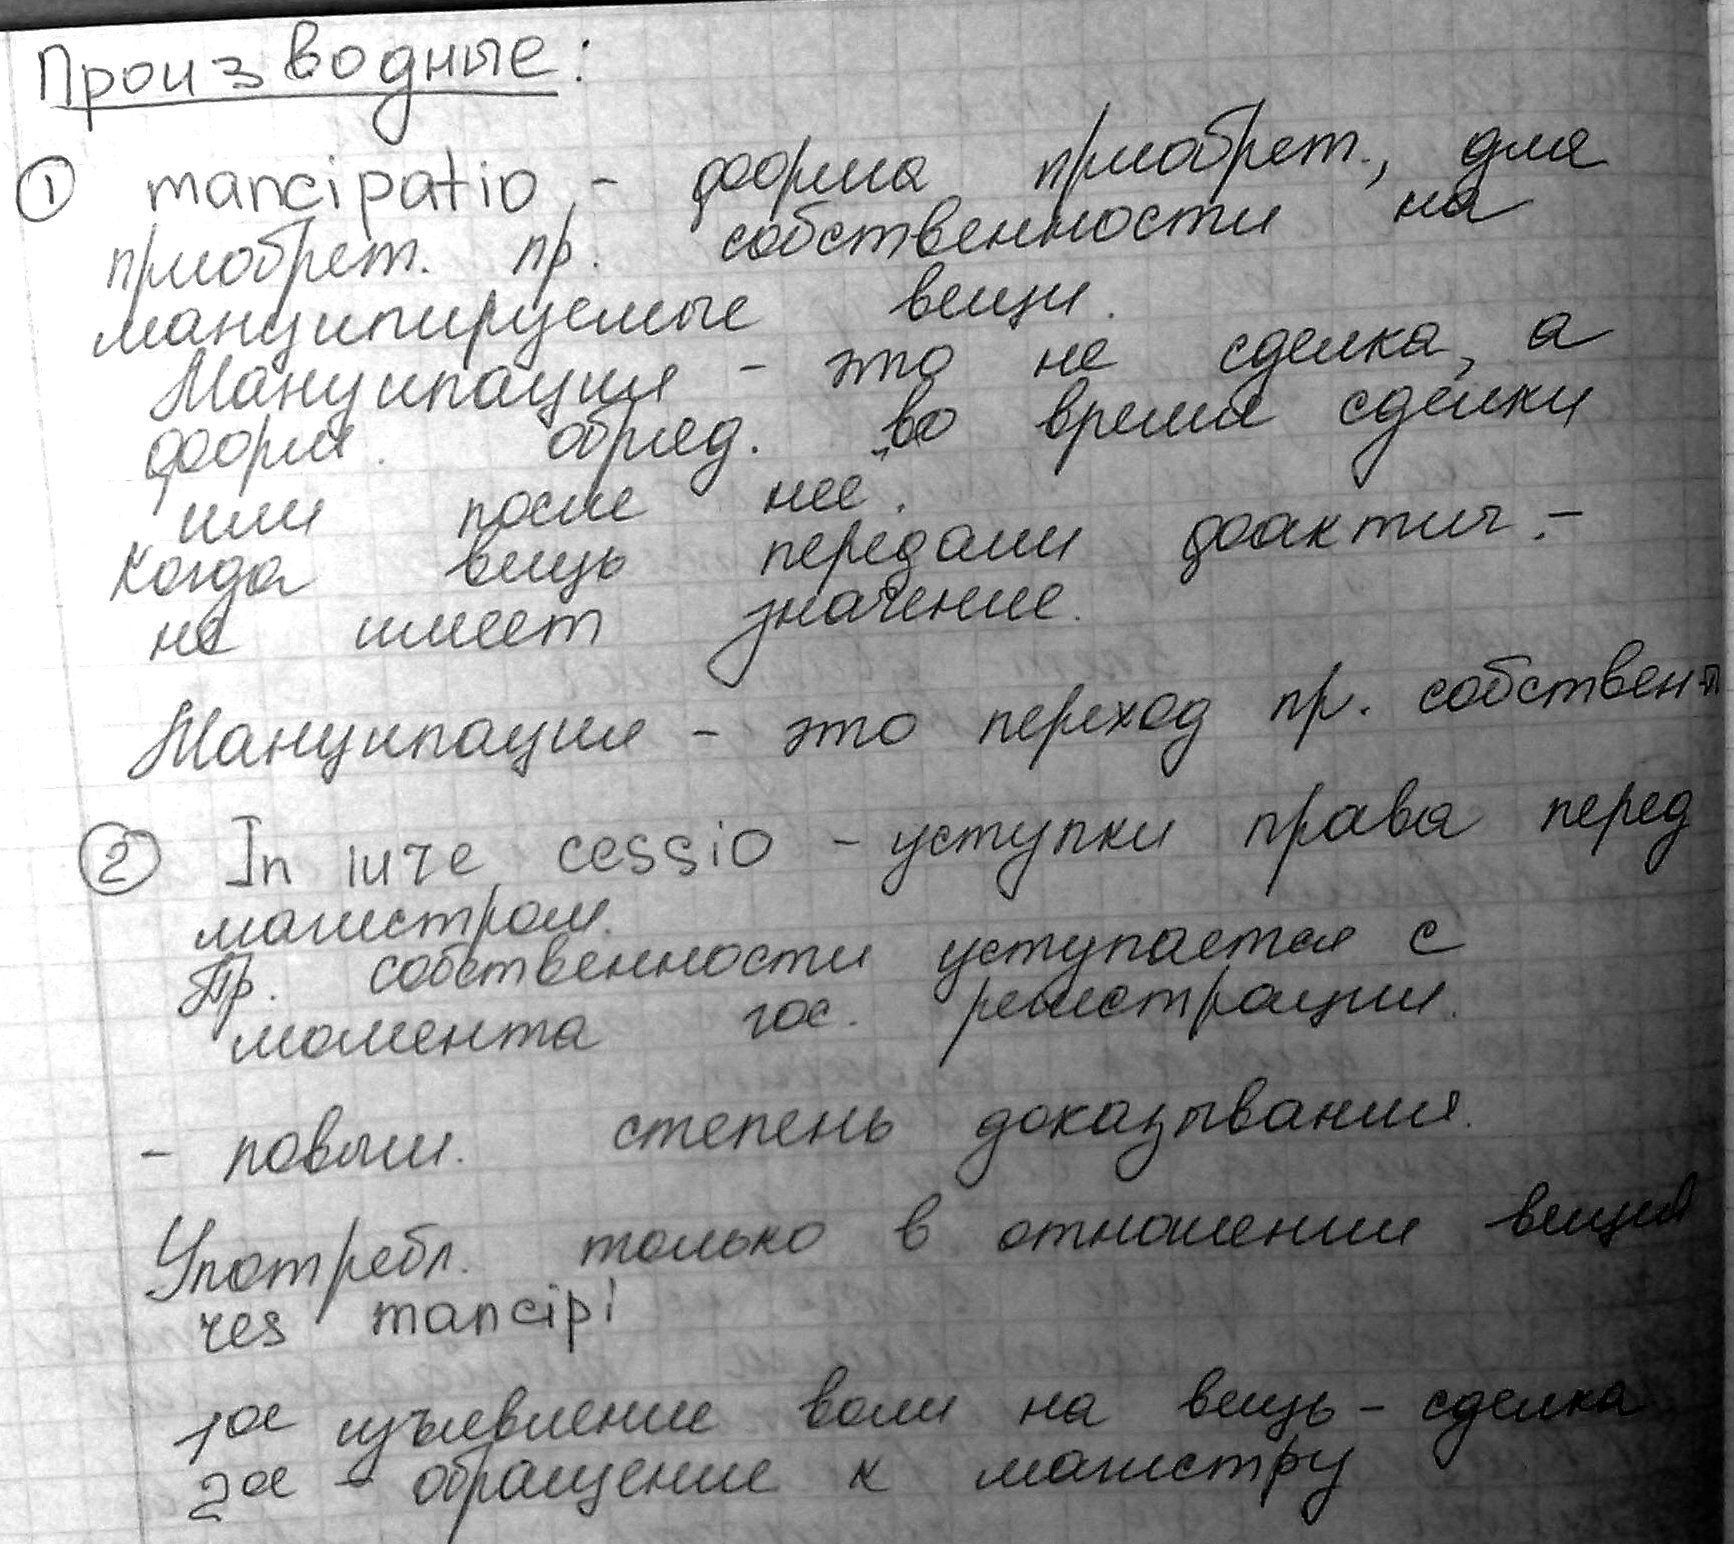 Производные:
① mancipatio - форма приобрет., для
приобрет. пр. собственности на
манципируемые вещи.
Манципация - это не сделка, а
форм. обряд. во время сделки
или после неё.
Когда вещь передали фактич. -
не имеет значение.
Манципация - это переход пр. собствен-
② In iure cessio - уступки права перед
магистром.
Пр. собственности уступается с
момента гос. регистрации.
- повыш. степень доказывания.
Употребл. только в отношении вещей
res mancipi
1ое изъявление воли на вещь - сделка
2ое - обращение к магистру